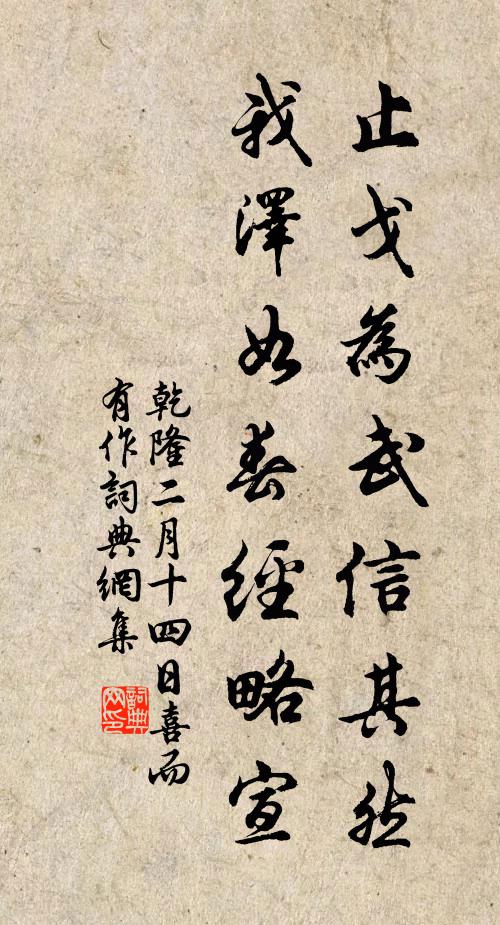 止戈為武信其然
我澤如春經略宣
乾隆二月十四日喜而
有作詞典網集
詞典
网印